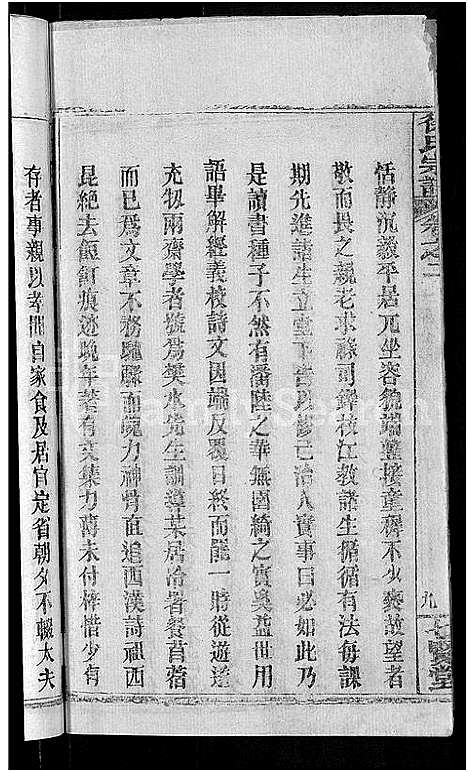 恬靜沉毅平居兀坐容貌端整接童穉不少褻故望者
敬而畏之親老求祿司鐸枝江教諸生循循有法每課
期先進諸生立堂下告以修己治人實事曰必如此乃
是讀書種子不然有潘陸之華無園綺之實奚益世用
語畢解經義校詩文因端反覆日終而罷一時從遊達
充牣兩齋學者號為樊水先生訓導某居冷署餐苜蓿
而已為文章不務馳騁而魄力神骨直追西漢詩祖西
昆絕去飣餖痕迹晚年著有文集力薄未付梓惜少有
存者事親以孝聞自家食及居官定省朝夕不輟太夫
徐氏宗譜 卷之二
九
堂